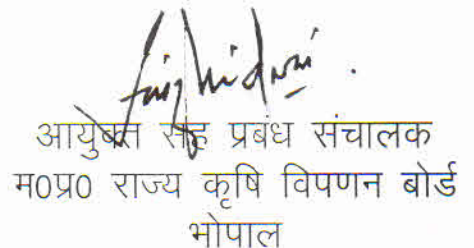 आयुक्त सह प्रबंध संचालक
म0प्र0 राज्य कृषि विपणन बोर्ड
भोपाल